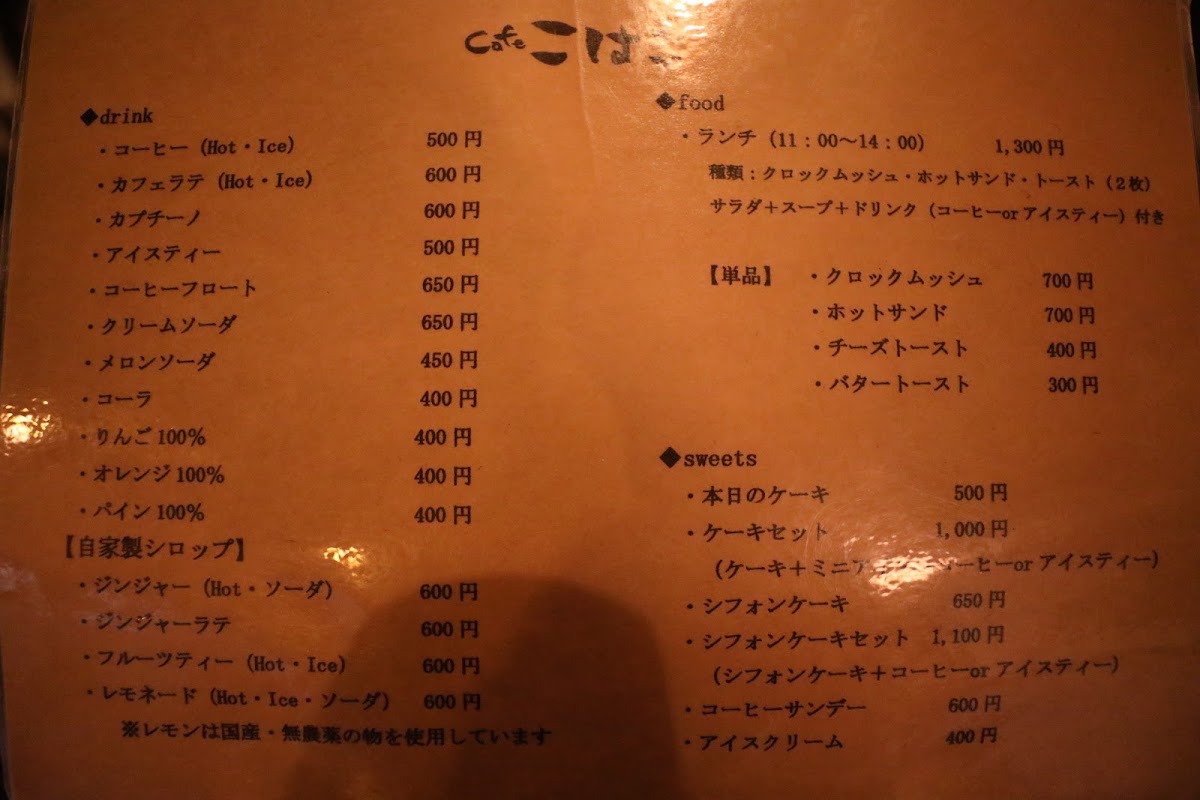 Cafe こは
◆drink
・コーヒー(Hot・Ice) 500円
・カフェラテ(Hot・Ice) 600円
・カプチーノ 600円
・アイスティー 500円
・コーヒーフロート 650円
・クリームソーダ 650円
・メロンソーダ 450円
・コーラ 400円
・りんご100% 400円
・オレンジ100% 400円
・パイン100% 400円
【自家製シロップ】
・ジンジャー(Hot・ソーダ) 600円
・ジンジャーラテ 600円
・フルーツティー(Hot・Ice) 600円
・レモネード(Hot・Ice・ソーダ) 600円
※レモンは国産・無農薬の物を使用しています
◆food
・ランチ(11:00~14:00) 1,300円
種類:クロックムッシュ・ホットサンド・トースト(2枚)
サラダ+スープ+ドリンク(コーヒーorアイスティー)付き
【単品】 ・クロックムッシュ 700円
・ホットサンド 700円
・チーズトースト 400円
・バタートースト 300円
◆sweets
・本日のケーキ 500円
・ケーキセット 1,000円
(ケーキ+ミニア ーヒーorアイスティー)
・シフォンケーキ 650円
・シフォンケーキセット 1,100円
(シフォンケーキ+コーヒーorアイスティー)
・コーヒーサンデー 600円
・アイスクリーム 400円